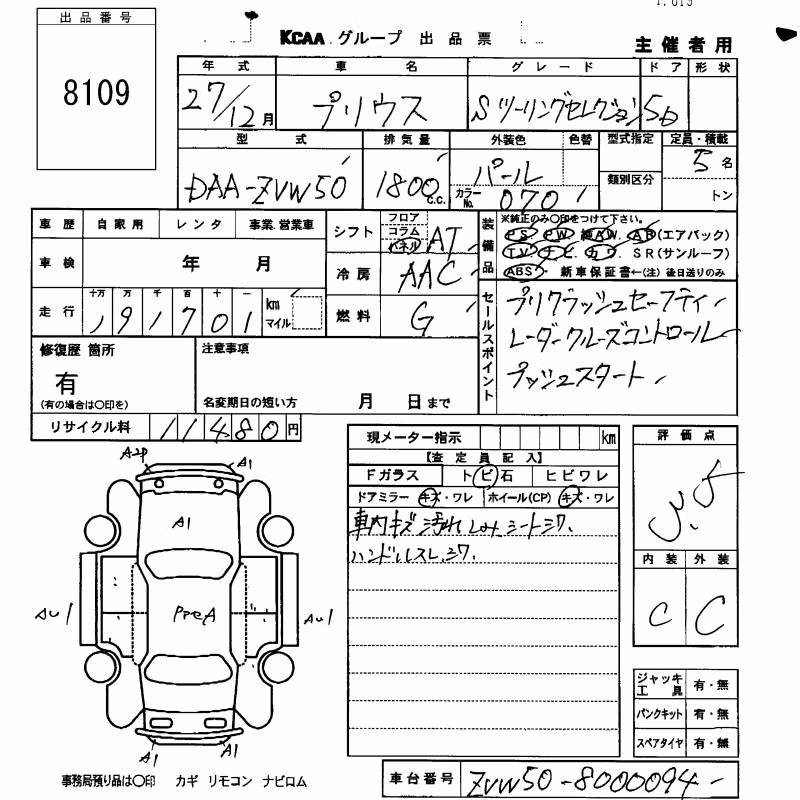 1.015
出品番号
8109
KCAA グループ 出品票
主催者用
年式 車名 グレード ドア 形状
27/12月 プリウス Sツーリングセレクション 5D
型式 排気量 外装色 色替 型式指定 定員・積載
DAA-ZVW50 1800c.c. パール カラーNo. 070 類別区分 5名 トン
車歴 自家用 レンタ 事業.営業車
車検 年 月
走行 十万 万 千 百 十 一 km マイル
191701
シフト フロア コラム パネル AT
冷房 AAC
燃料 G
装備品 ※純正のみ○印をつけて下さい。
PS PW 純AW. AB(エアバック)
TV ナビ. カワ. SR(サンルーフ)
ABS 新車保証書←(注)後日送りのみ
セールスポイント
プリクラッシュセーフティ
レーダークルーズコントロール
プッシュスタート
修復歴 箇所
有
(有の場合は○印を)
注意事項
名変期日の短い方 月 日まで
リサイクル料 11480円
現メーター指示 km
【査定員記入】
Fガラス トビ石 ヒビワレ
ドアミラー キズ・ワレ ホイール(CP) キズ・ワレ
車内キズ汚れシミ、シートシワ.
ハンドルスレ.シワ.
評価点
3.5
内装 外装
C C
A2P A1
A1
AU1 PアミA AU1
A1 A1
ジャッキ工具 有・無
パンクキット 有・無
スペアタイヤ 有・無
事務局預り品は○印 カギ リモコン ナビロム
車台番号 ZVW50-8000094